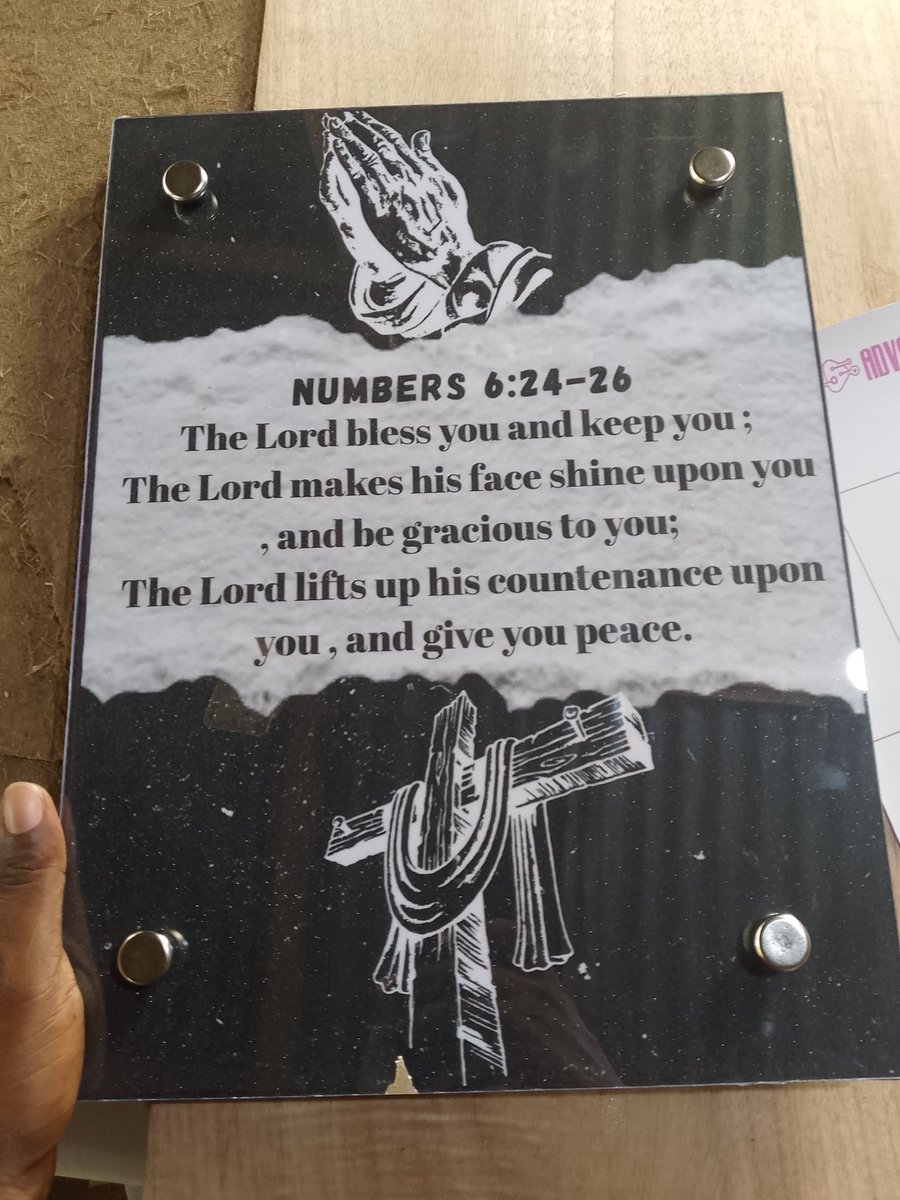 NUMBERS 6:24-26
The Lord bless you and keep you ;
The Lord makes his face shine upon you
, and be gracious to you;
The Lord lifts up his countenance upon
you , and give you peace.